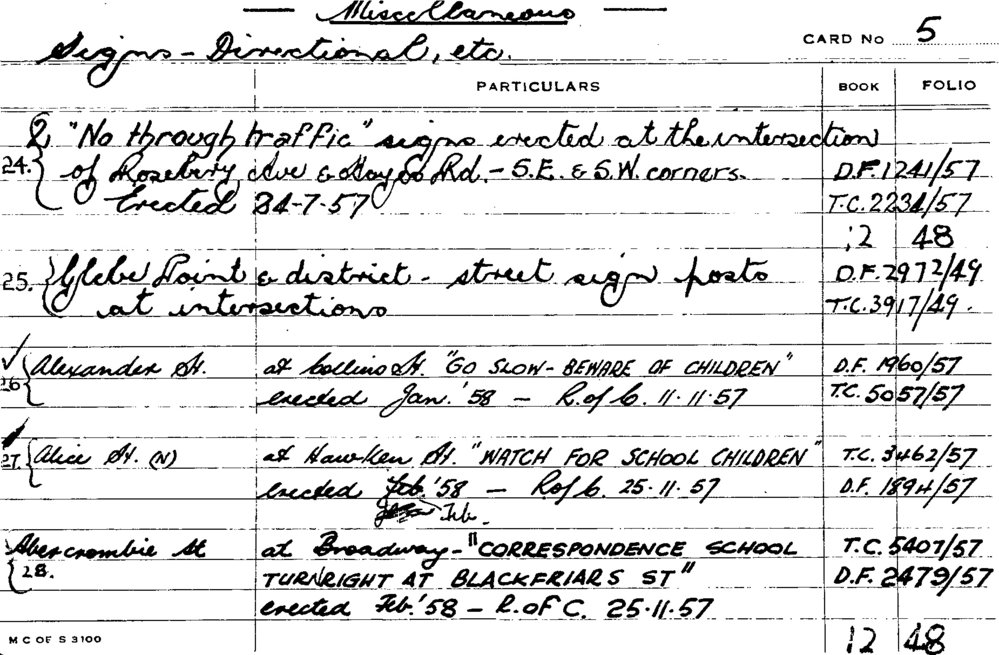 — Miscellaneous —
Signs - Directional, etc.
CARD No 5
PARTICULARS BOOK FOLIO
2 "No through traffic" signs erected at the intersection
24. of Rosebery Ave & Rd. - S.E. & S.W. corners. D.F. 1241/57
Erected 24-7-57 T.C. 2234/57
12 48
25. Glebe Point & district - street sign posts D.F. 2972/49
at intersections T.C. 3917/49.
✓ Alexander St. at Collins St. "GO SLOW - BEWARE OF CHILDREN" D.F. 1960/57
26 erected Jan. '58 - R. of C. 11.11.57 T.C. 5057/57
27. Alice St. (N) at Hawken St. "WATCH FOR SCHOOL CHILDREN" T.C. 3462/57
erected Feb. '58 - R of C. 25.11.57 D.F. 1894/57
Feb.
Abercrombie St at Broadway - "CORRESPONDENCE SCHOOL T.C. 5407/57
28. TURN RIGHT AT BLACKFRIARS ST" D.F. 2479/57
erected Feb. '58 - R. of C. 25.11.57
M C OF S 3100 12 48